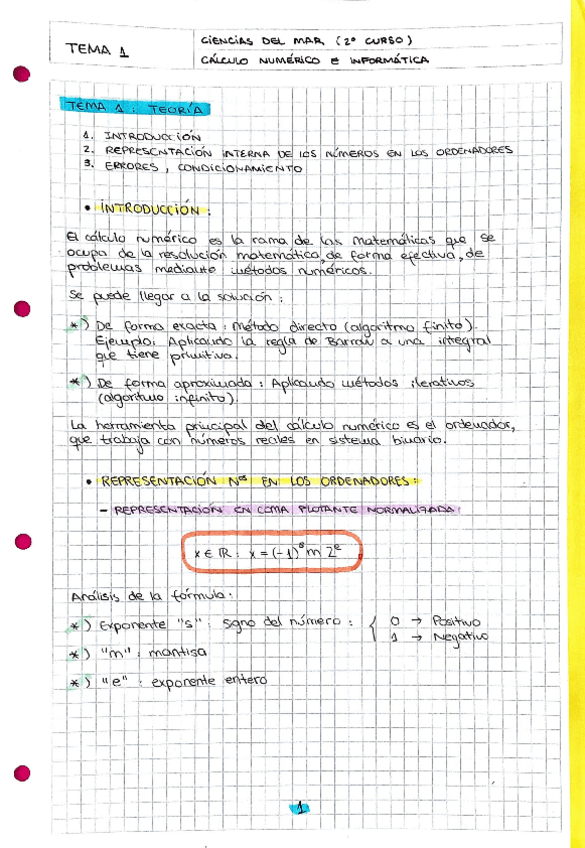 TEMA 1
CIENCIAS DEL MAR (2º CURSO)
CÁLCULO NUMÉRICO E INFORMÁTICA
TEMA 1: TEORÍA
1. INTRODUCCIÓN
2. REPRESENTACIÓN INTERNA DE LOS NÚMEROS EN LOS ORDENADORES
3. ERRORES, CONDICIONAMIENTO
• INTRODUCCIÓN:
El cálculo numérico es la rama de las matemáticas que se
ocupa de la resolución matemática, de forma efectiva, de
problemas mediante métodos numéricos.
Se puede llegar a la solución:
*) De forma exacta: Método directo (algoritmo finito).
Ejemplo: Aplicando la regla de Barrow a una integral
que tiene primitiva.
*) De forma aproximada: Aplicando métodos iterativos
(algoritmo infinito).
La herramienta principal del cálculo numérico es el ordenador,
que trabaja con números reales en sistema binario.
• REPRESENTACIÓN Nºs EN LOS ORDENADORES:
- REPRESENTACIÓN EN COMA FLOTANTE NORMALIZADA:
x ∈ ℝ: x = (-1)^s m 2^e
Análisis de la fórmula:
*) Exponente "s": signo del número: { 0 → Positivo
1 → Negativo
*) "m": mantisa
*) "e": exponente entero
1